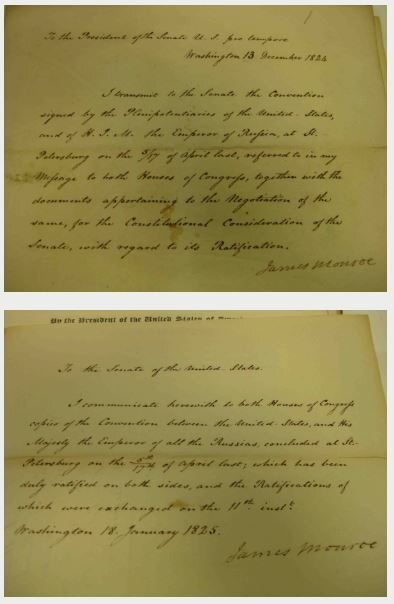 To the President of the Senate U. S. pro tempore
Washington 13 December 1824
I transmit to the Senate the Convention
signed by the Plenipotentiaries of the United States,
and of H. I. M. the Emperor of Russia, at St.
Petersburg on the 5/17 of April last, referred to in my
Message to both Houses of Congress, together with the
documents appertaining to the Negotiation of the
same, for the Constitutional Consideration of the
Senate, with regard to its Ratification.
James Monroe
By the President of the United States of
To the Senate of the United States.
I communicate herewith to both Houses of Congress
copies of the Convention between the United States, and His
Majesty the Emperor of all the Russias, concluded at St.
Petersburg on the 5th/17th of April last; which has been
duly ratified on both sides, and the Ratifications of
which were exchanged on the 11th. inst.
Washington 18. January 1825.
James Monroe